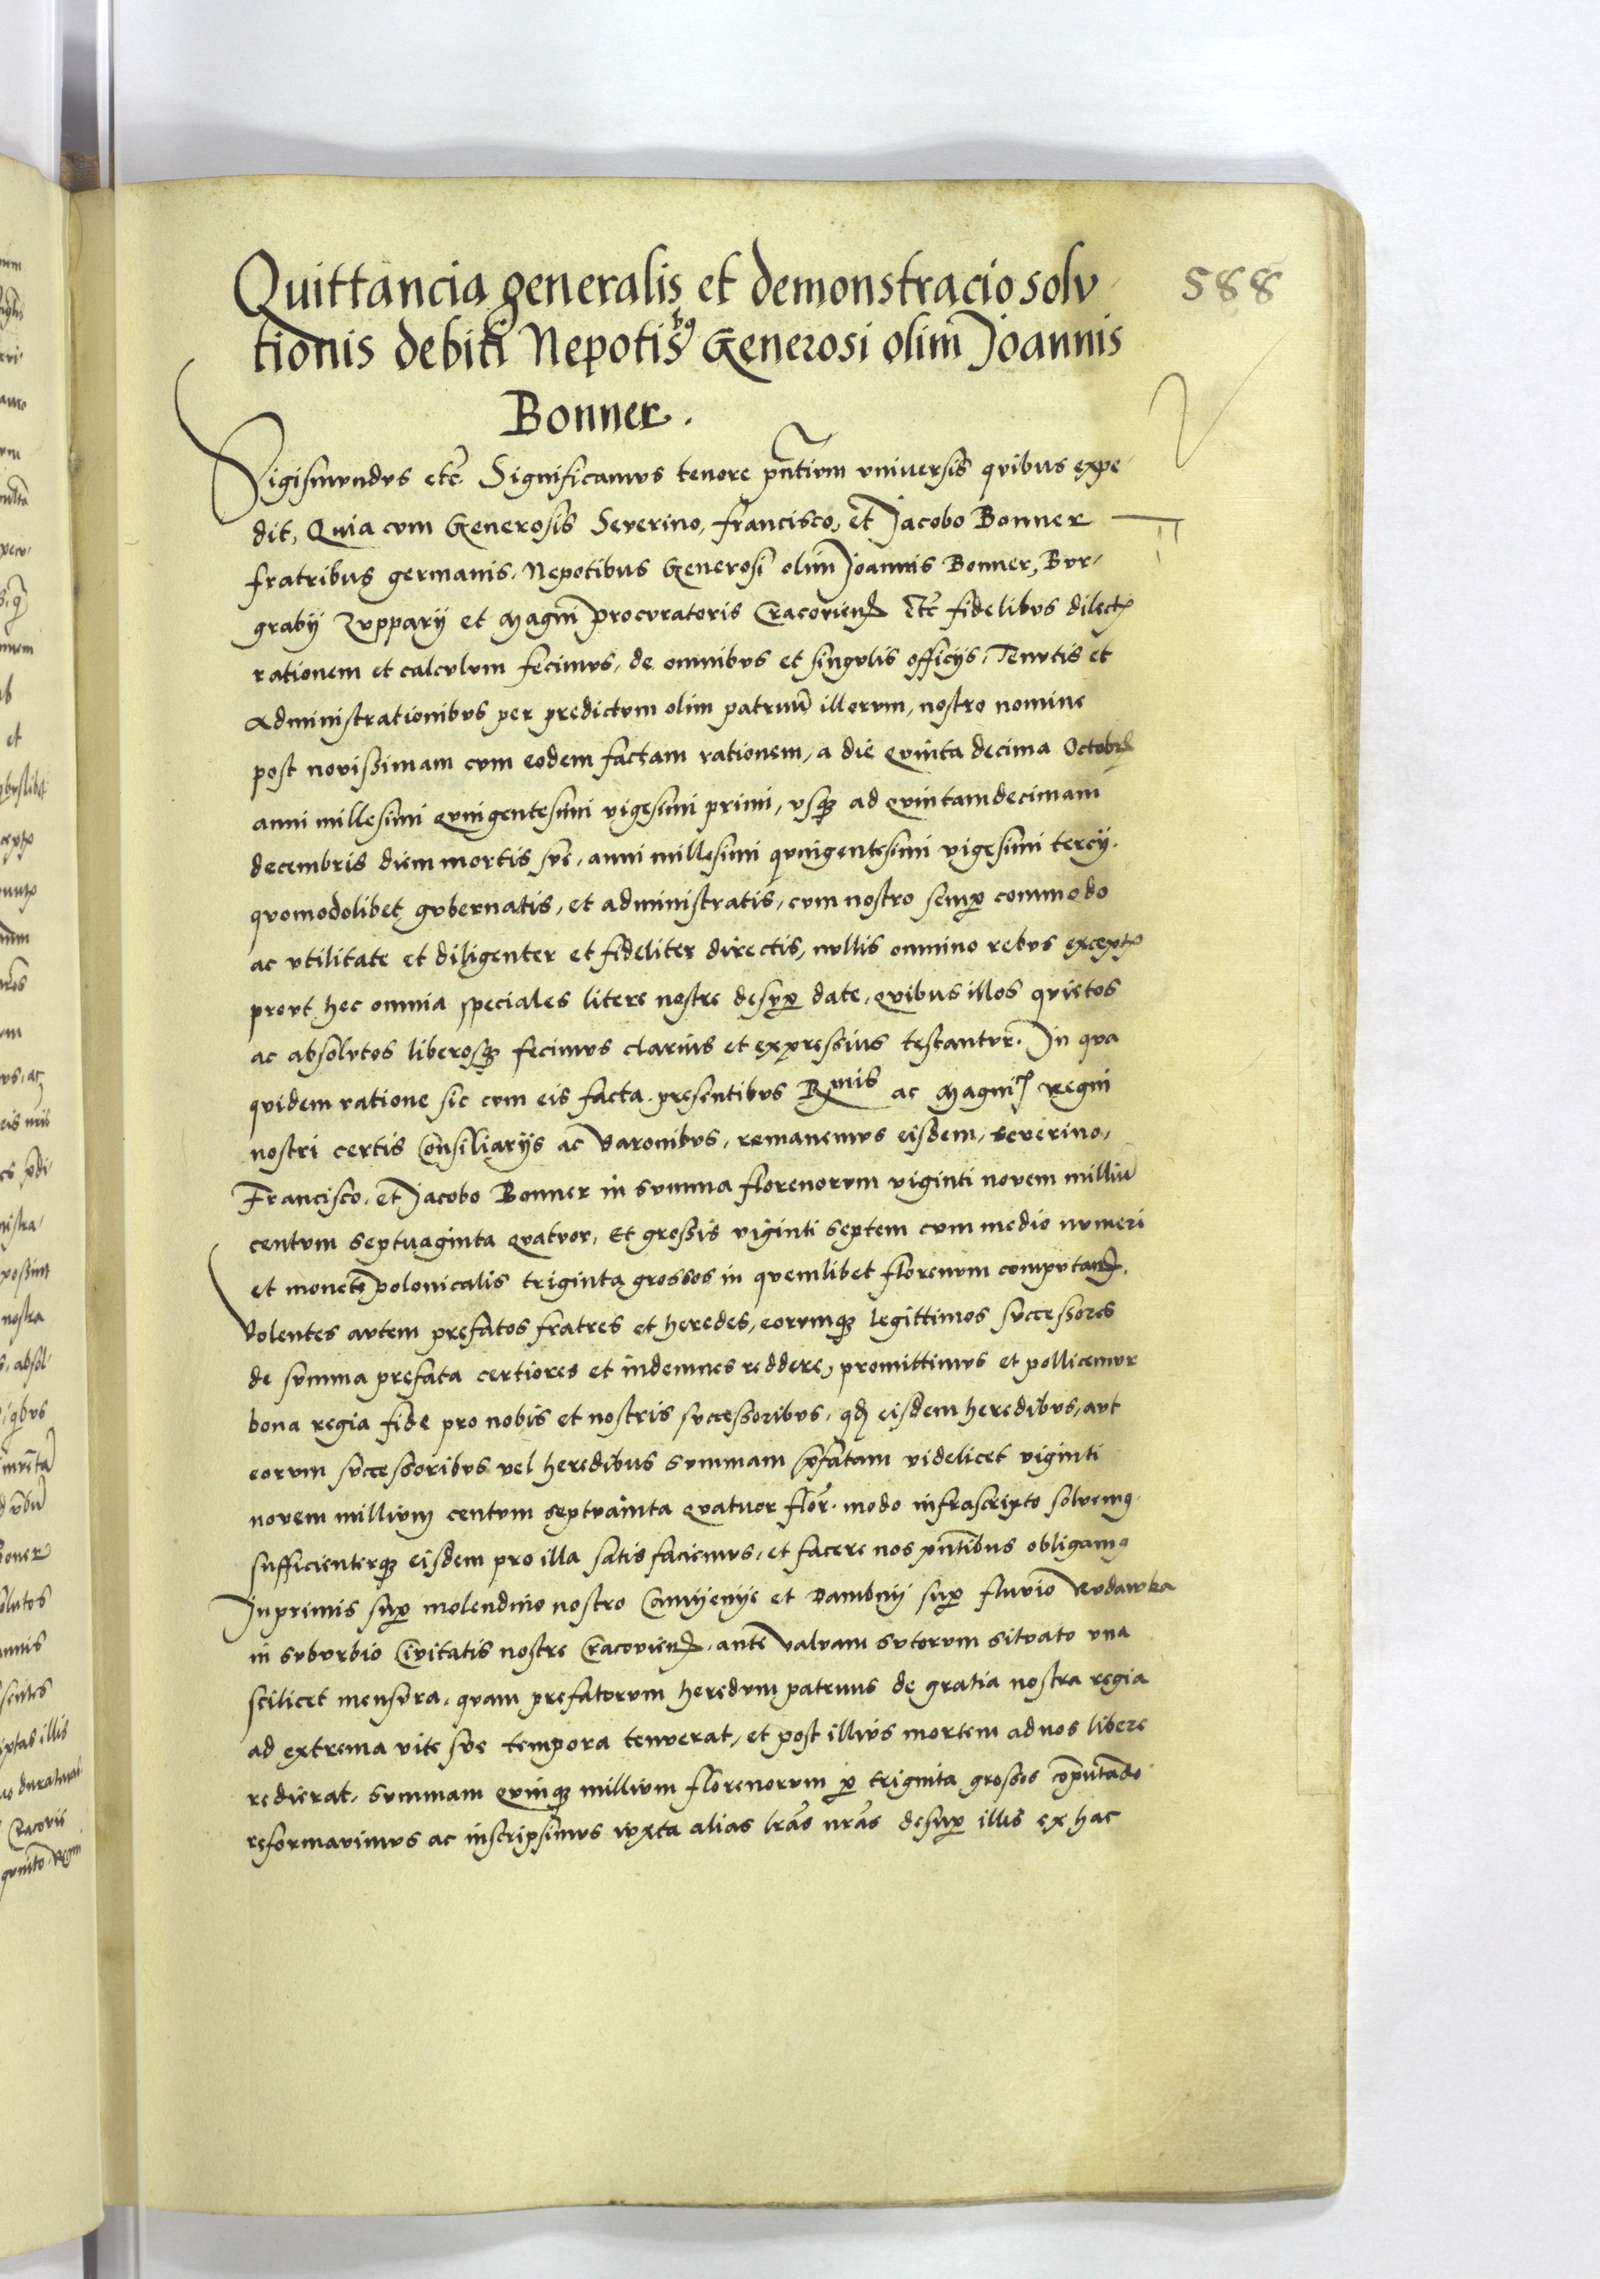 588
Quittancia generalis et demonstracio solu
tionis debiti Nepotibus Generosi olim Joannis
Bonner.
Sigismundus etc. Significamus tenore pñtium vniuersis quibus expe
dit, Quia cum Generosis Seuerino, francisco, et Jacobo Bonner
fratribus germanis, Nepotibus Generosi olim Joannis Bonner, Bur,
grabÿ Zupparÿ et Magni procuratoris Cracovien etc fidelibus dilect
rationem et calculum fecimus, de omnibus et singulis officÿs, Tenutis et
administrationibus per predictum olim patruũ illorum, nostro nomine
post nouissimam cum eodem factam rationem, a die quinta decima Octobr
anni millesimi quingentesimi vigesimi primi, vsqʒ ad quintamdecimam
decembris diem mortis sue, anni millesimi quingentesimi vigesimi tercÿ.
quomodolibet gubernatis, et administratis, cum nostro semper commodo
ac vtilitate et diligenter et fideliter directis, nullis omnino rebus except
prout hec omnia speciales litere nostre desuper date, quibus illos quietos
ac absolutos liberosqʒ fecimus clarius et expressius testantur. In qua
quidem ratione sic cum eis facta. presentibus Rmis ac Magni Regni
nostri certis Consiliarÿs ac Baronibus, remanemus eisdem, seuerino,
Francisco, et Jacobo Bonner in summa florenorum viginti nouem milliũ
centum septuaginta quatuor, Et grossis viginti septem cum medio numeri
et monete polonicalis triginta grossos in quemlibet florenum computand.
Volentes autem prefatos fratres et heredes, eorumqʒ legittimos successores
de summa prefata certiores et indemnes reddere, promittimus et pollicemur
bona regia fide pro nobis et nostris successoribus, qd eisdem heredibus, aut
eorum successoribus vel heredibus summam pfatam videlicet viginti
nouem millium centum septuainta quatuor flor. modo infrascripto soluemq.
sufficienterqʒ eisdem pro illa satis faciemus, et facere nos pñtibus obligamq
Inprimis super molendino nostro Camÿenÿe et Dambnÿ super fluuio Rudawka
in suburbio Ciuitatis nostre Cracovien, ante valuam sutorum situato vna
scilicet mensura, quam prefatorum heredum patruus de gratia nostra regia
ad extrema vite sue tempora tenuerat, et post illius mortem ad nos libere
redierat, summam quinqʒ millium florenorum per triginta grossos computando
reformauimus ac inscripsimus iuxta alias lrãs nrãs desuper illis ex hac